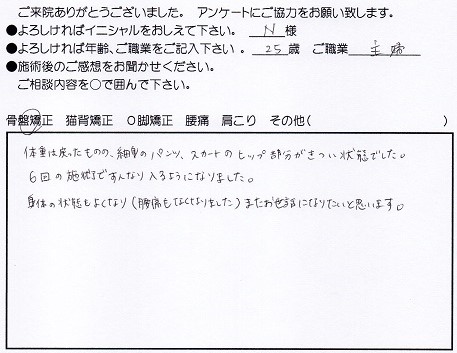 ご来院ありがとうございました。 アンケートにご協力をお願い致します。
●よろしければイニシャルをおしえて下さい。 N 様
●よろしければ年齢、ご職業をご記入下さい 。 25 歳 ご職業 主婦
●施術後のご感想をお聞かせください。
ご相談内容を〇で囲んで下さい。
骨盤矯正 猫背矯正 O脚矯正 腰痛 肩こり その他( )
体重は戻ったものの、細身のパンツ、スカートのヒップ部分がきつい状態でした。
6回の施術ですんなり入るようになりました。
身体の状態もよくなり(腰痛もなくなりました)またお世話になりたいと思います。